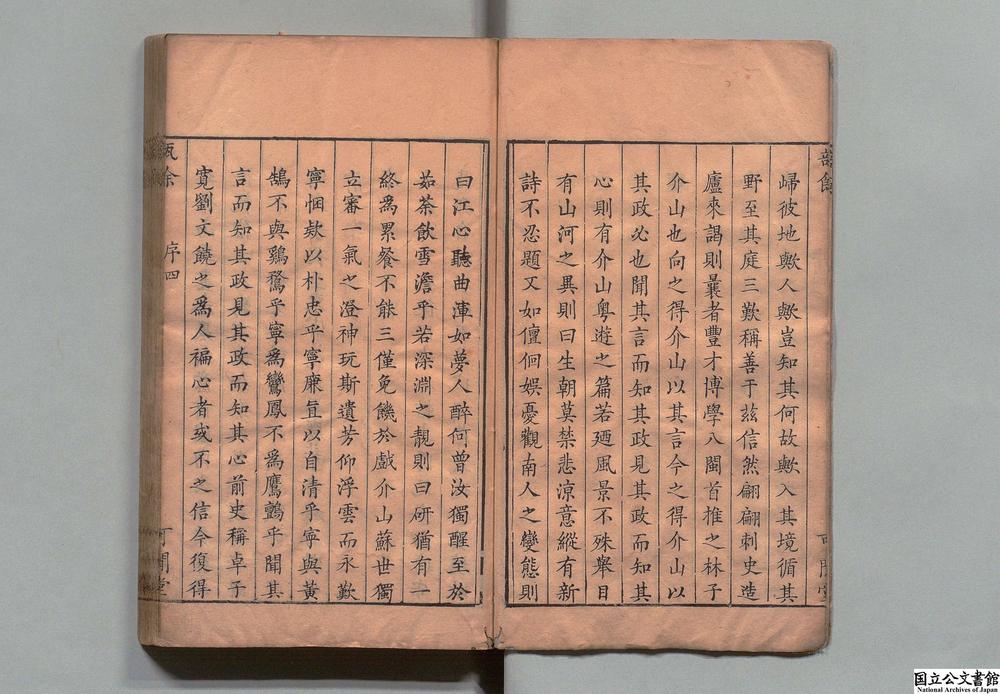 歸彼地歟人歟豈知其何故歟入其境循其
野至其庭三歎稱善于茲信然翩翩刺史造
廬來謁則曩者豐才博學八閩首推之林子
介山也向之得介山以其言今之得介山以
其政必也聞其言而知其政見其政而知其
心則有介山粵遊之篇若廼風景不殊舉目
有山河之異則曰生朝莫禁悲涼意縱有新
詩不忍題又如儃佪娛憂觀南人之變態則
曰江心聽曲渾如夢人醉何曾汝獨醒至於
茹荼飲雪澹乎若深淵之靚則曰研猶有一
終為累餐不能三僅免饑於戲介山蘇世獨
立審一氣之澄神玩斯遺芳仰浮雲而永歎
寧悃欵以朴忠乎寧廉㒵以自清乎寧與黃
鵠不與鷄鶩乎寧為鸞鳳不為鷹鸇乎聞其
言而知其政見其政而知其心前史稱卓子
寬劉文饒之為人褊心者或不之信今復得
序四
可閒堂
国立公文書館
National Archives of Japan